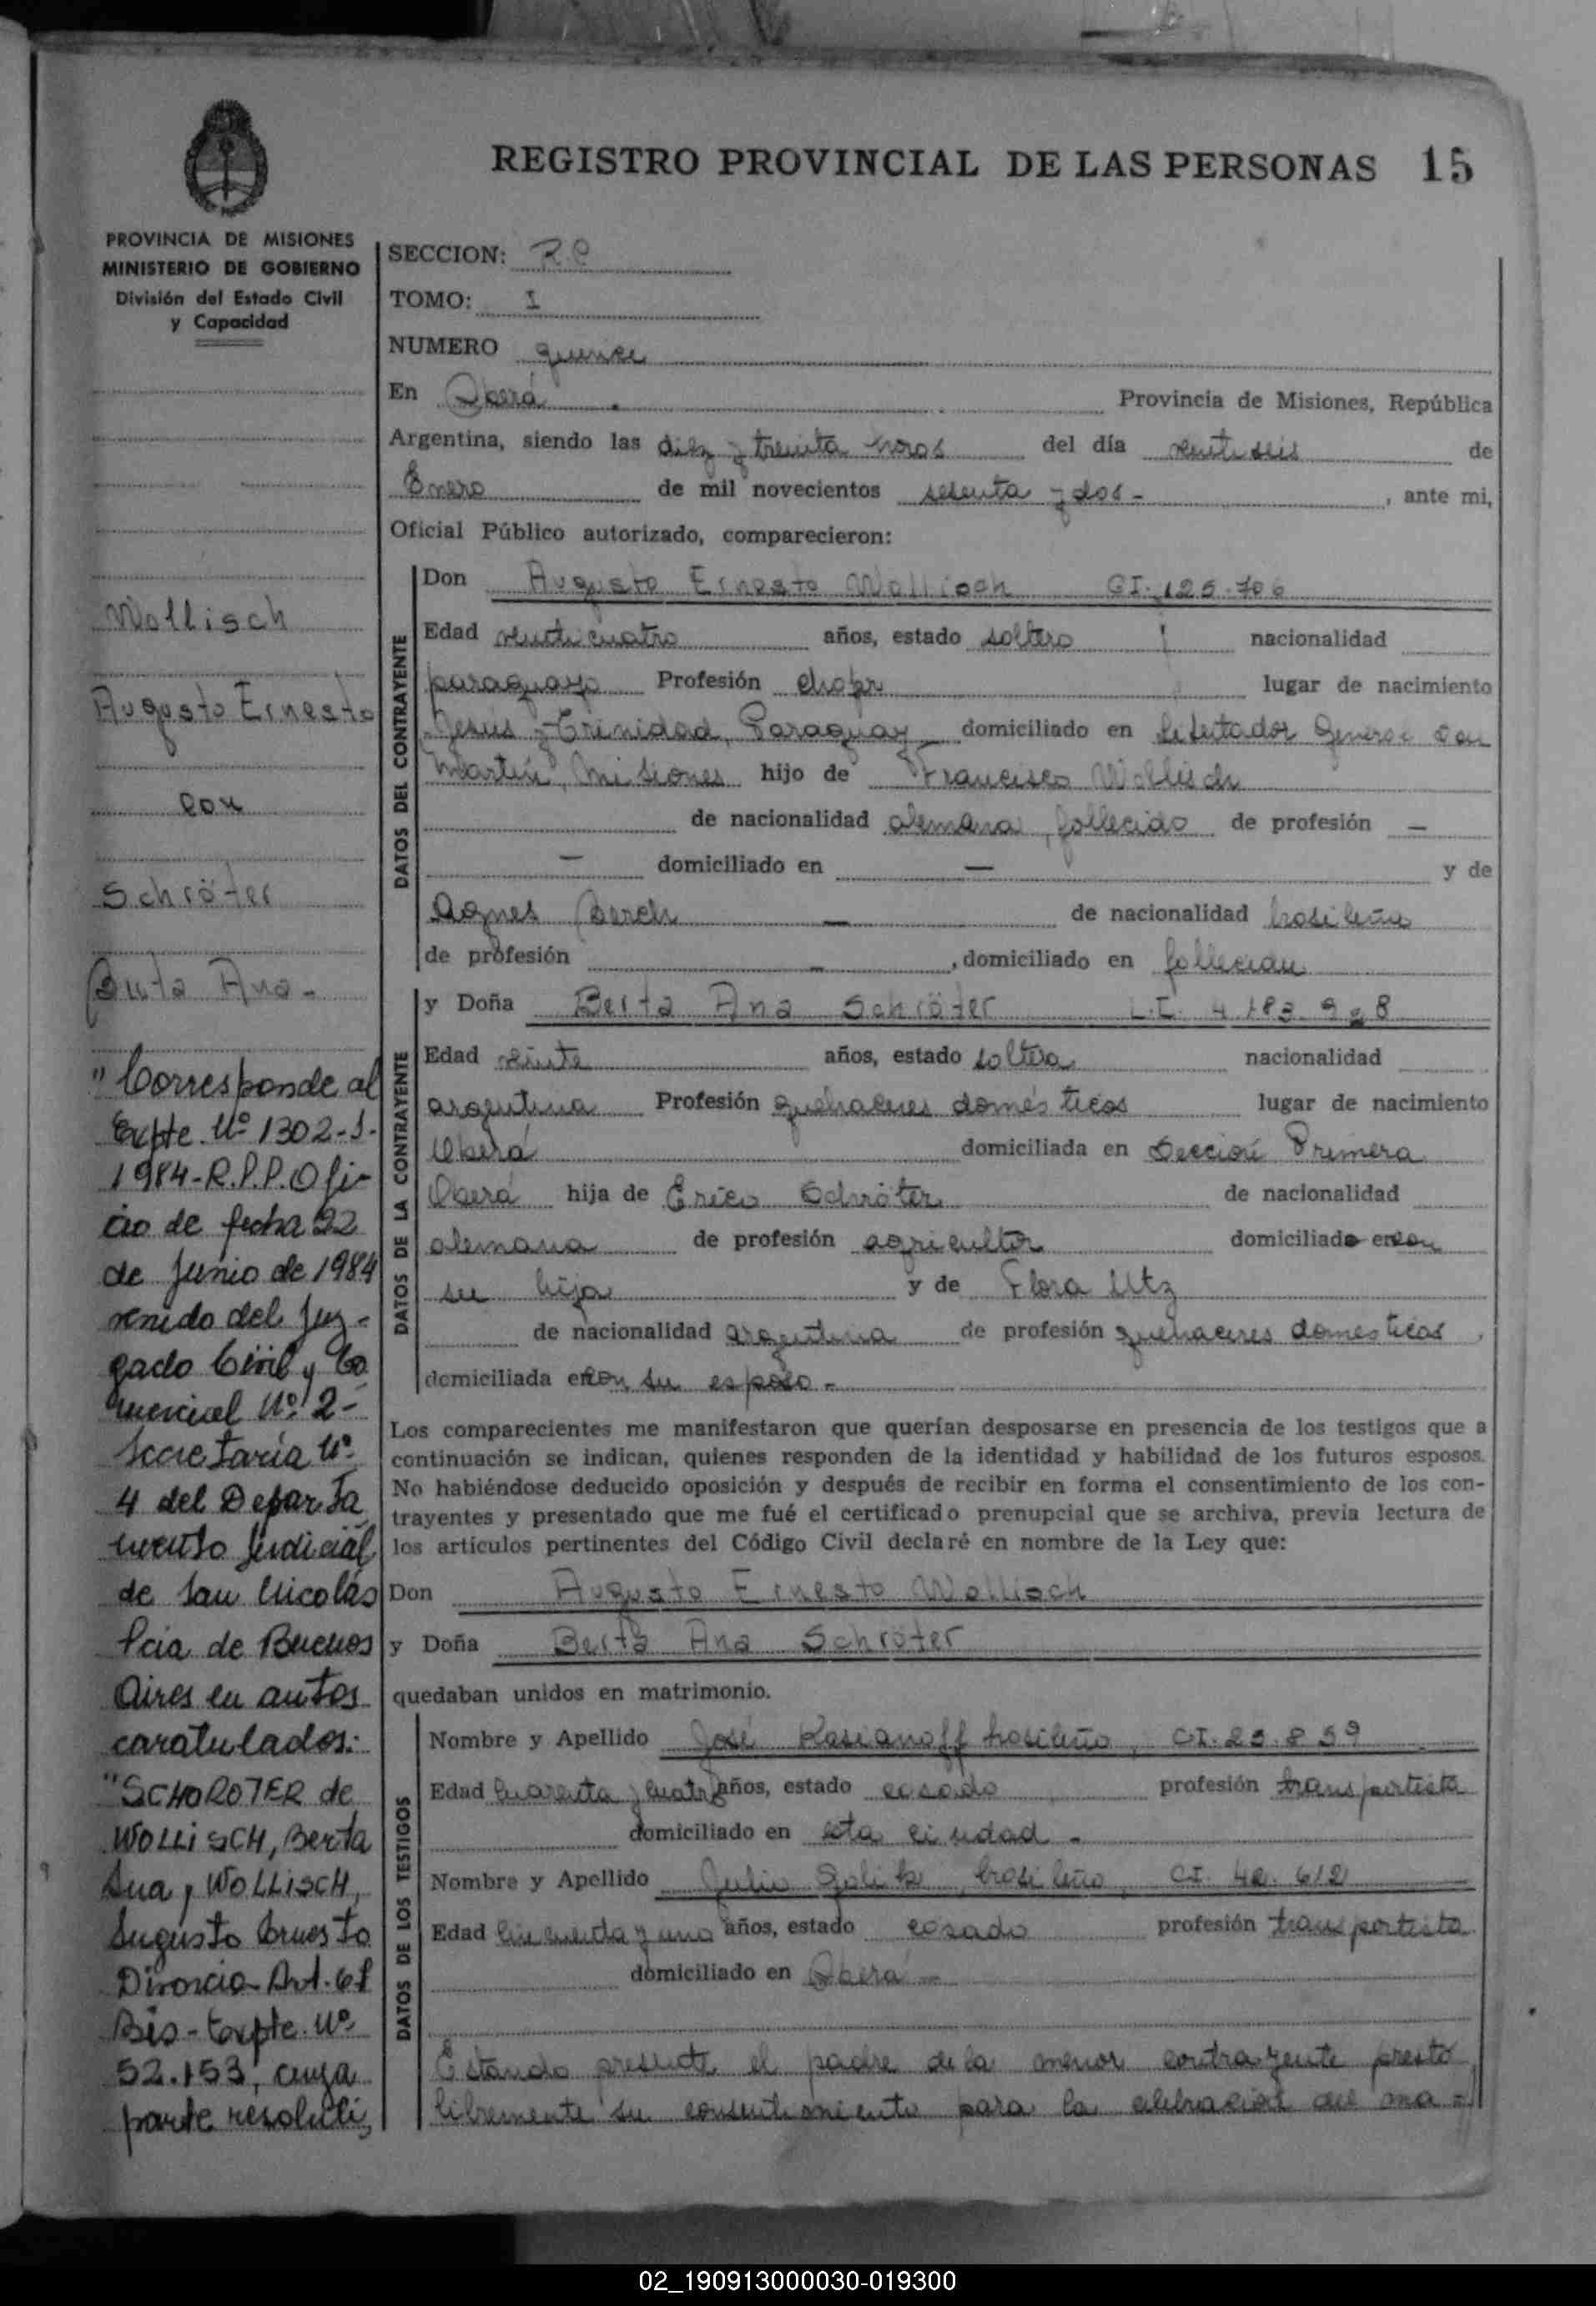 REGISTRO PROVINCIAL DE LAS PERSONAS 15
PROVINCIA DE MISIONES
MINISTERIO DE GOBIERNO
División del Estado Civil
y Capacidad
SECCION: R.C
TOMO: I
NUMERO quince
En Oberá Provincia de Misiones, República
Argentina, siendo las diez y treinta horas del día veintiseis de
Enero de mil novecientos setenta y dos - , ante mi,
Oficial Público autorizado, comparecieron:
Wollisch
Augusto Ernesto
con
Schröter
Berta Ana -
DATOS DEL CONTRAYENTE
Don Augusto Ernesto Wollisch CI. 125.706
Edad veinticuatro años, estado soltero nacionalidad
paraguayo Profesión chofer lugar de nacimiento
Jesús y Trinidad, Paraguay domiciliado en Libertador General San
Martín, Misiones hijo de Francisco Wollisch
de nacionalidad alemana, fallecido de profesión —
— domiciliado en — y de
Agnes Berch — de nacionalidad brasileña
de profesión — , domiciliado en fallecida
DATOS DE LA CONTRAYENTE
y Doña Berta Ana Schröter L.C. 4.183.9 8
Edad veinte años, estado soltera nacionalidad
argentina Profesión quehaceres domésticos lugar de nacimiento
Oberá domiciliada en Sección Primera
Oberá hija de Erico Schröter de nacionalidad
alemana de profesión agricultor domiciliado en con
su hija y de Flora Utz
de nacionalidad argentina de profesión quehaceres domesticos ,
domiciliada en con su esposo -
Los comparecientes me manifestaron que querían desposarse en presencia de los testigos que a
continuación se indican, quienes responden de la identidad y habilidad de los futuros esposos.
No habiéndose deducido oposición y después de recibir en forma el consentimiento de los con-
trayentes y presentado que me fué el certificado prenupcial que se archiva, previa lectura de
los artículos pertinentes del Código Civil declaré en nombre de la Ley que:
Don Augusto Ernesto Wollisch
y Doña Berta Ana Schröter
quedaban unidos en matrimonio.
DATOS DE LOS TESTIGOS
Nombre y Apellido José Kasianoff brasileño, CI. 29.859
Edad cuarenta y cuatro años, estado casado profesión transportista
domiciliado en esta ciudad -
Nombre y Apellido Julio brasileño, CI. 42.612
Edad cincuenta y uno años, estado casado profesión transportista
domiciliado en Oberá -
Estando presente el padre de la menor contrayente prestó
libremente su consentimiento para la celebración del ma =
"Corresponde al
Expte. Nº 1302-S-
1984-R.P.P. Ofi-
cio de fecha 22
de Junio de 1984
venido del Juz-
gado Civil y Co
mercial Nº 2-
Secretaría Nº
4 del Departa
mento Judicial
de San Nicolás
Pcia de Buenos
Aires en autos
caratulados:
"SCHOROTER de
WOLLISCH, Berta
Ana y WOLLISCH,
Augusto Ernesto
Divorcio Art. 67
Bis - Expte. Nº
52.153, cuya
parte resoluti,
02_190913000030-019300